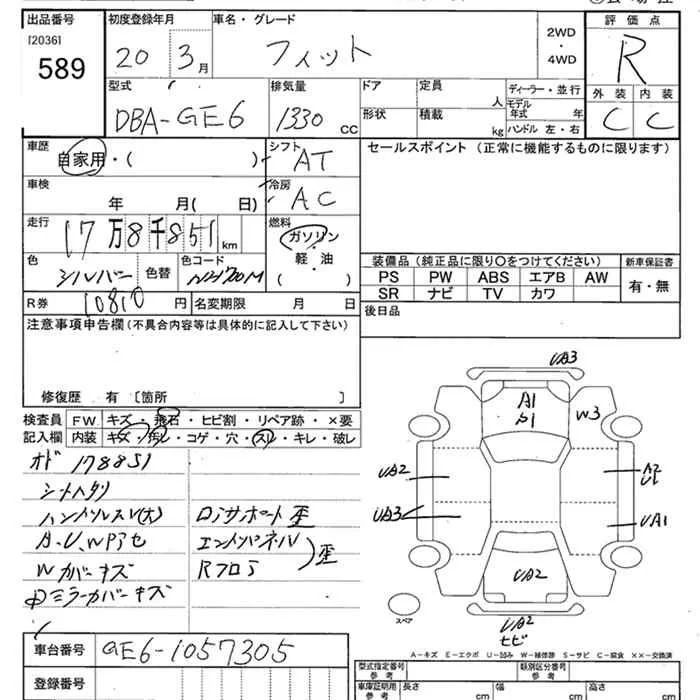 出品番号 初度登録年月 車名・グレード 評価点
[2036] 20 3月 フィット 2WD・4WD R
589
型式 排気量 ドア 定員 人 ディーラー・並行 外装 内装
DBA-GE6 1330 cc 形状 積載 kg モデル年式 年 C C
ハンドル 左・右
車歴 自家用・( ) シフト AT セールスポイント (正常に機能するものに限ります)
車検 年 月( 日) 冷房 AC
走行 17万8千851 km 燃料 ガソリン 軽・油 ( )
色 シルバー 色替 色コード NH700M
装備品 (純正品に限り○をつけてください) 新車保証書
PS PW ABS エアB AW 有・無
SR ナビ TV カワ
R券 10810円 名変期限 月 日 後日品
注意事項申告欄 (不具合内容等は具体的に記入して下さい)
修復歴 有 〔箇所 〕
検査員記入欄 FW キズ・飛石・ヒビ割・リペア跡・×要
内装 キズ・汚レ・コゲ・穴・スレ・キレ・破レ
オド 178851
シートヘタリ
ハンドルスレ(大) ロアサポート歪
A.U.W P アセ エンドパネル 歪
W カバーキズ Rフロア
ミラーカバーキズ
UA3
A1
W3
UA2
UA3
A2
UA1
UA2
UA2
ヒビ
スペア
A-キズ E-エクボ U-凹み W-補修跡 S-サビ C-腐食 ××-交換済
車台番号 GE6-1057305
型式指定番号 参考 類別区分番号 参考
登録番号
車庫証明用 参考 長さ cm 幅 cm 高さ cm